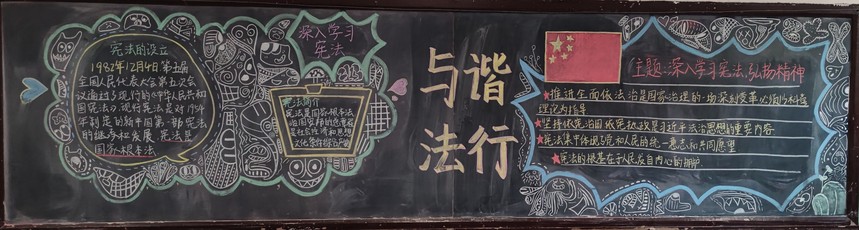 宪法的设立
1982年12月4日第五届
全国人民代表大会第五次会
议通过了现行的《中华人民共和
国宪法》。现行宪法是对1954
年制定的新中国第一部宪法
的继承和发展。宪法是
国家根本法
深入学习
宪法
宪法简介
宪法是国家根本法
治国安邦的总章程
与谐
法行
主题:深入学习宪法,弘扬精神
★推进全面依法治国是国家治理的一场深刻变革必须以科学
理论为指导
★坚持依宪治国依宪执政是习近平法治思想的重要内容
★宪法集中体现了党和人民的统一意志和共同愿望
★宪法的根基在于人民发自内心的拥护